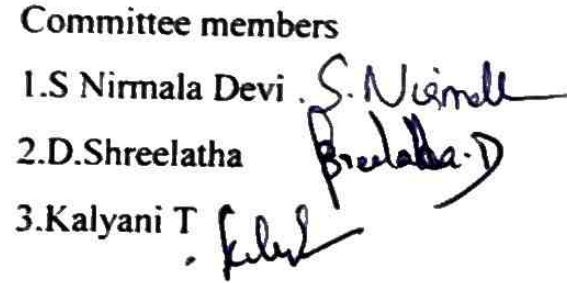 Committee members
1.S Nirmala Devi . S. Nirmala
2.D.Shreelatha Sreelatha.D
3.Kalyani T